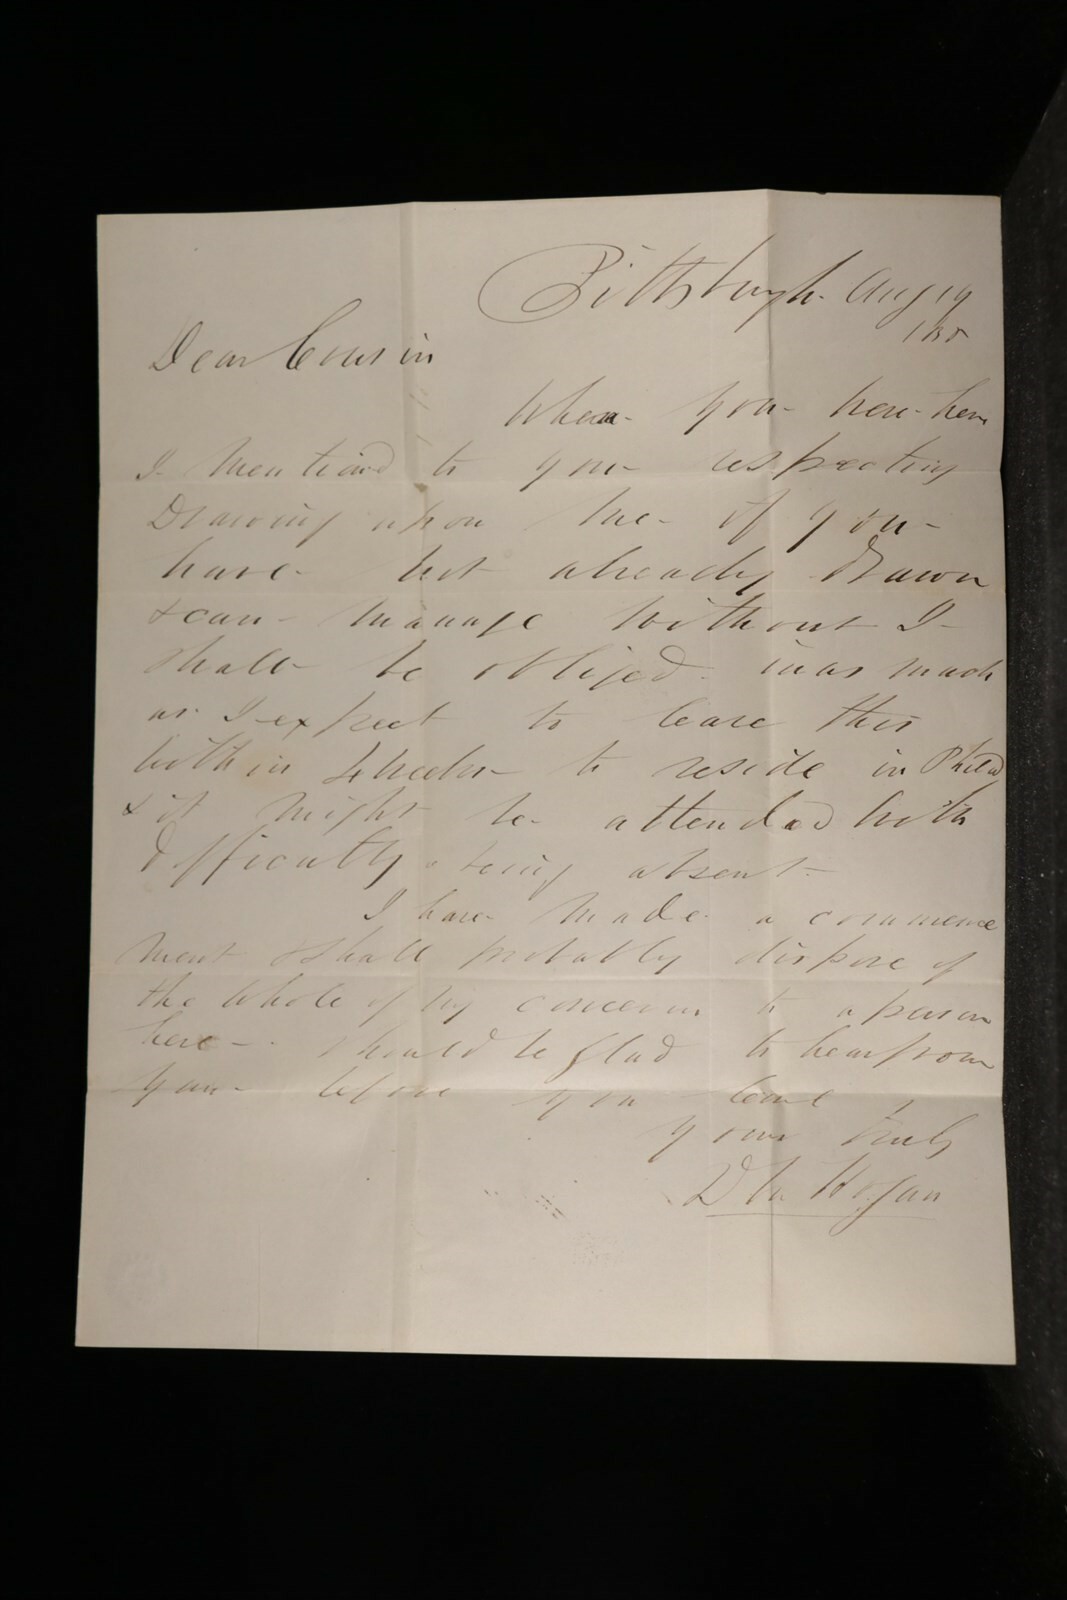 Pittsburgh Aug 19
Dear Cousin
When you were here
I mentioned to you respecting
Drawing upon me if you
have not already Drawn
& can manage without I
shall be obliged in as much
as I expect to leave this
within 4 weeks to reside in Philad
& it might be attended with
difficulty being absent
I have made a commence
ment & shall probably dispose of
the whole of my concern to a person
here - should be glad to hear from
you before you leave
yours truly
D Hogan